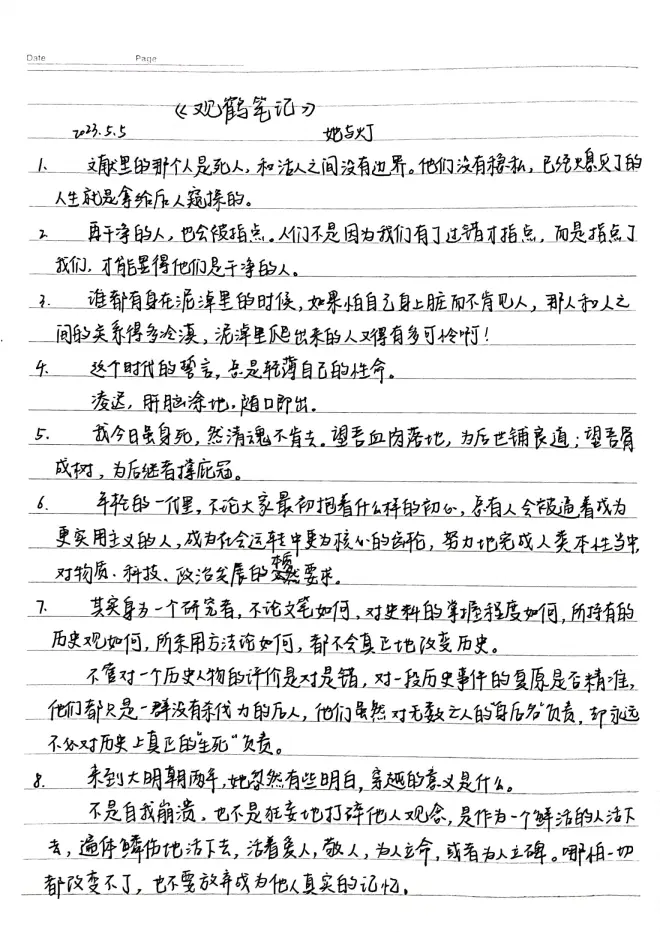 Date Page
《观鹤笔记》
2023.5.5 她与灯
1. 文献里的那个人是死人，和活人之间没有边界。他们没有隐私，已经熄灭了的
人生就是拿给后人窥探的。
2. 再干净的人，也会被指点。人们不是因为我们有了过错才指点，而是指点了
我们，才能显得他们是干净的人。
3. 谁都有身在泥淖里的时候，如果怕自己身上脏而不肯见人，那人和人之
间的关系得多冷漠，泥淖里爬出来的人又得有多可怜啊！
4. 这个时代的誓言，总是轻薄自己的性命。
凌迟，肝脑涂地，随口即出。
5. 我今日虽身死，然清魂不肯去。望吾血肉落地，为后世铺良道；望吾骨
成树，为后继者撑庇冠。
6. 年轻的一代里，不论大家最初抱着什么样的初心，总有人会被逼着成为
更实用主义的人，成为社会运转中更为核心的齿轮，努力地完成人类本性当中，
对物质、科技、政治发展的本质要求。
7. 其实身为一个研究者，不论文笔如何，对史料的掌握程度如何，所持有的
历史观如何，所采用方法论如何，都不会真正地改变历史。
不管对一个历史人物的评价是对是错，对一段历史事件的复原是否精准，
他们都只是一群没有杀伐力的后人，他们虽然对无数亡人的“身后名”负责，却永远
不必对历史上真正的“生死”负责。
8. 来到大明朝两年，她忽然有些明白，穿越的意义是什么。
不是自我崩溃，也不是狂妄地打碎他人观念，是作为一个鲜活的人活下
去，遍体鳞伤地活下去，活着爱人，敬人，为人立命，或者为人立碑。哪怕一切
都改变不了，也不要放弃成为他人真实的记忆。